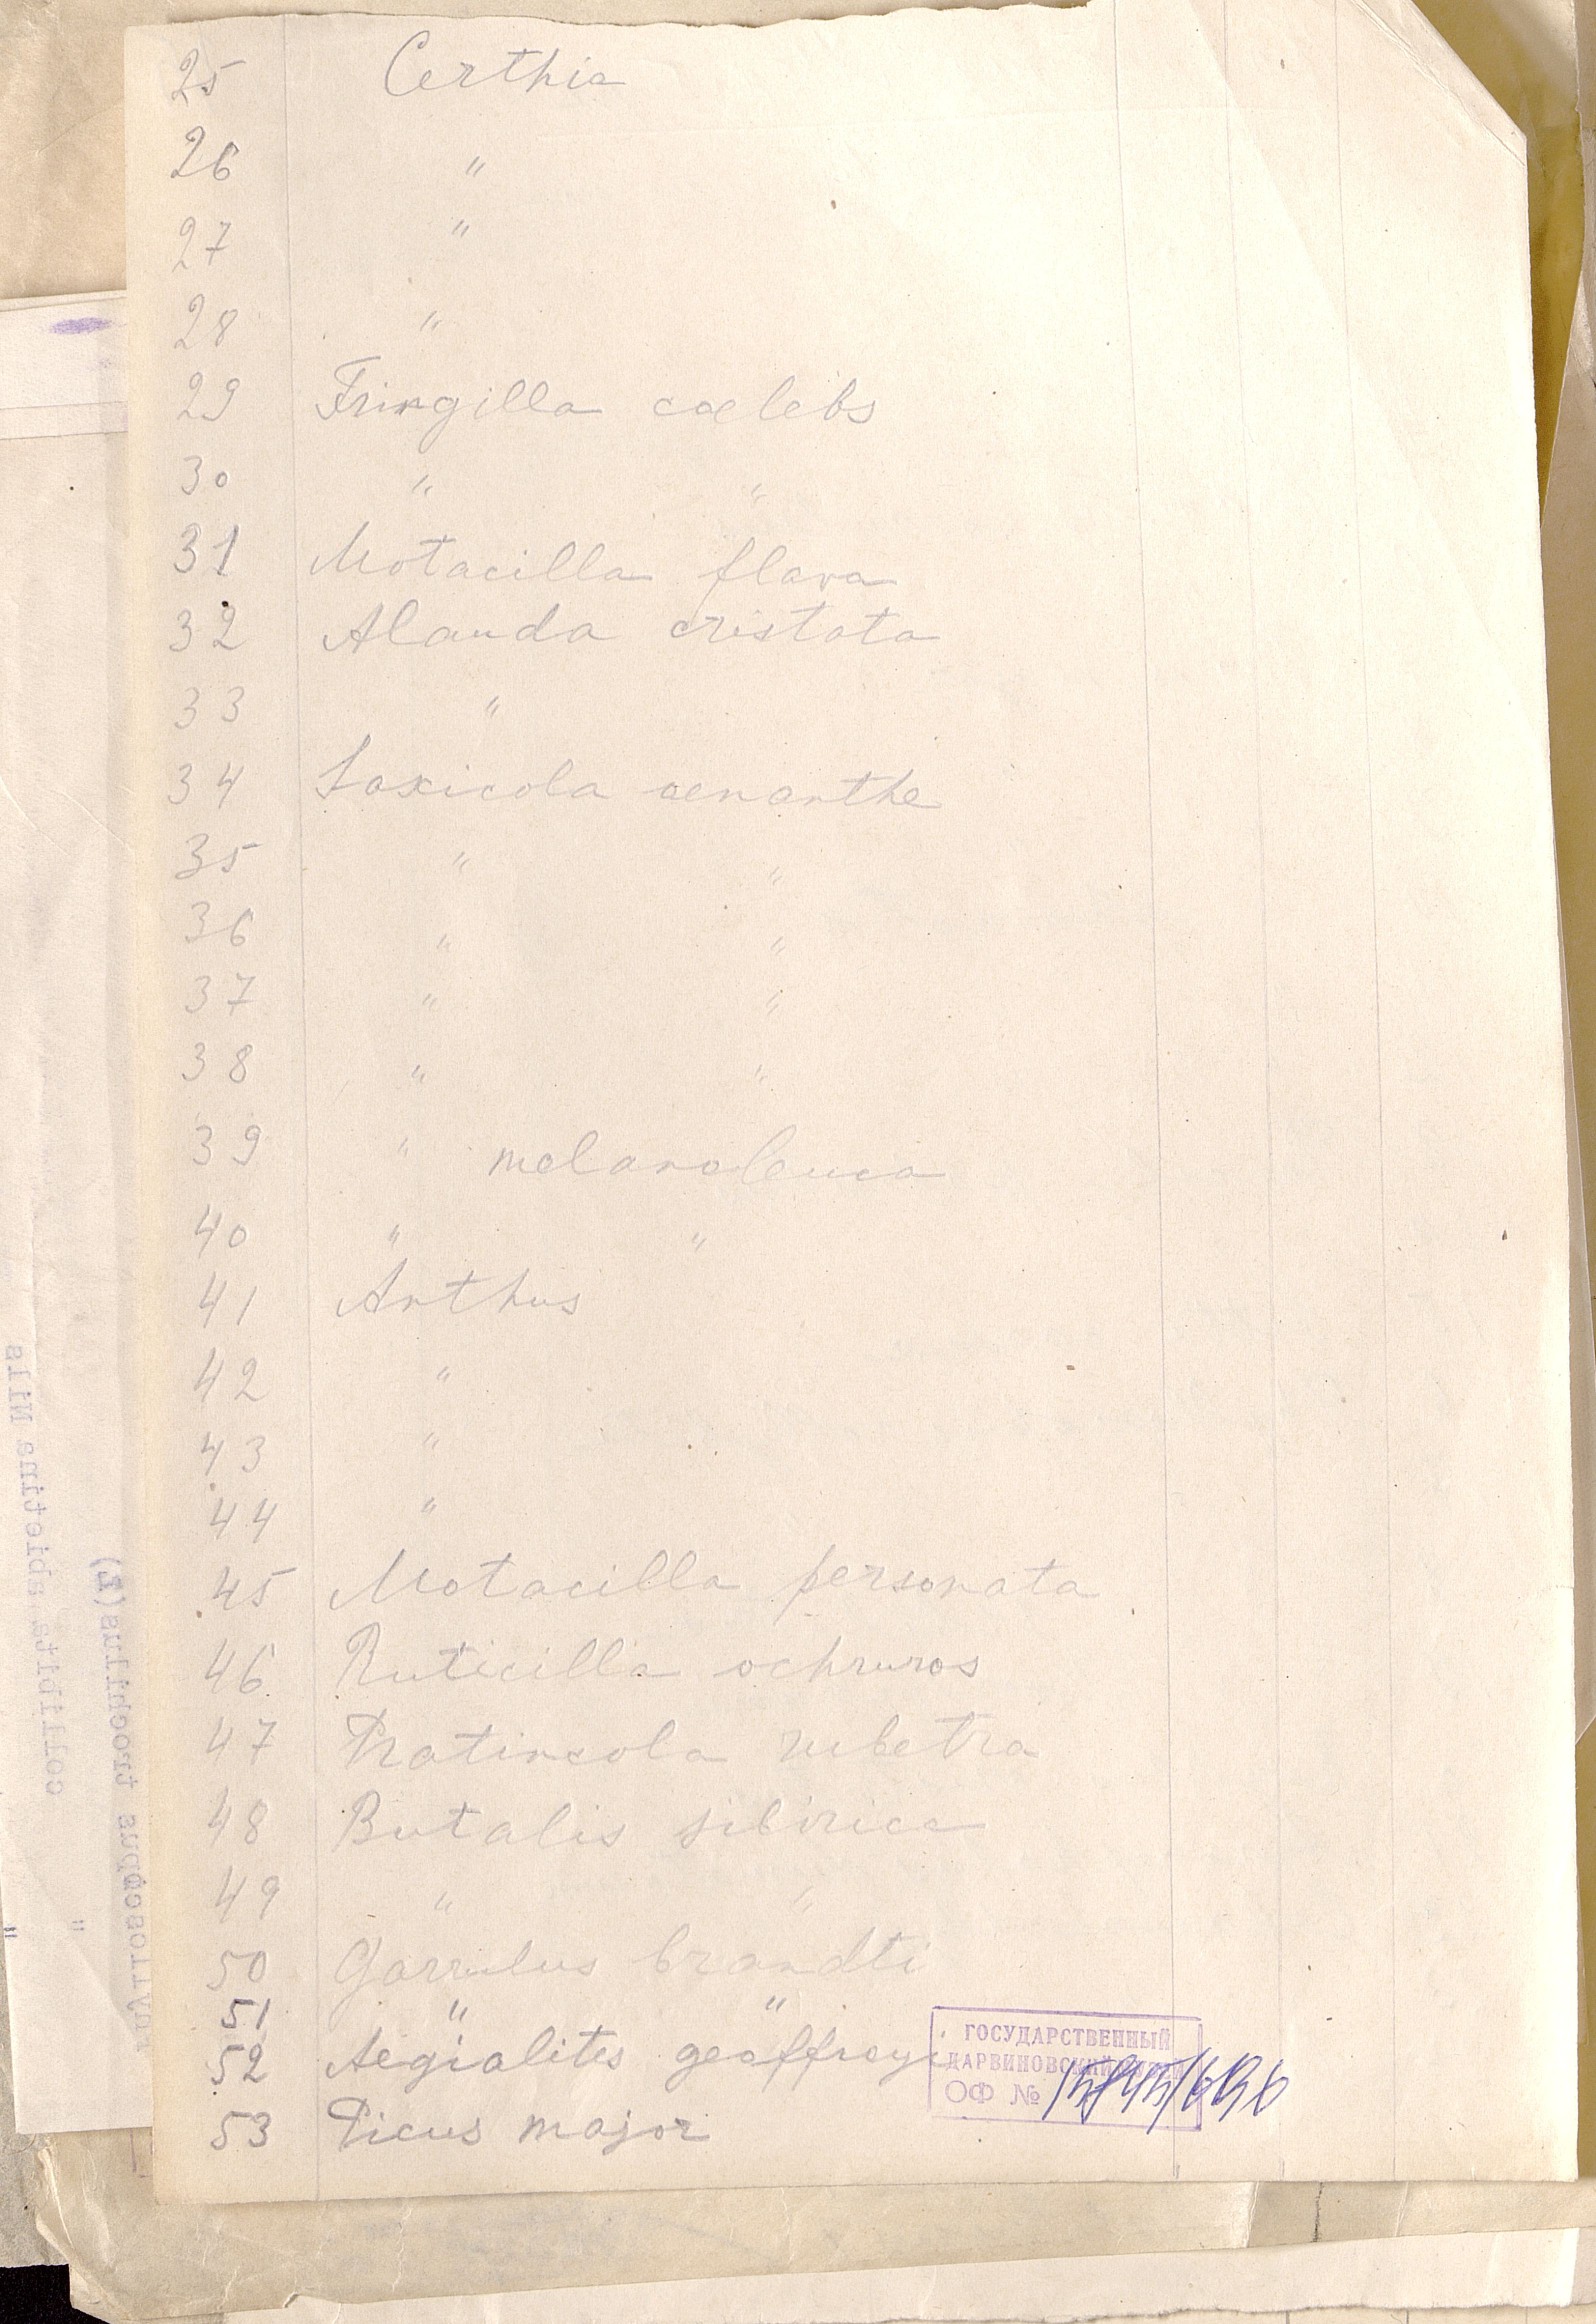 25 Certhia
26 "
27 "
28 "
29 Fringilla coelebs
30 " "
31 Motacilla flava
32 Alauda cristata
33 "
34 Saxicola oenanthe
35 " "
36 " "
37 " "
38 " "
39 " melanoleuca
40 " "
41 Anthus
42 "
43 "
44 "
45 Motacilla personata
46 Ruticilla ochruros
47 Pratincola rubetra
48 Butalis sibirica
49 " "
50 Garrulus brandti
51 " "
52 Aegialites geoffroyi
53 Picus major
ГОСУДАРСТВЕННЫЙ
ДАРВИНОВСКИЙ МУЗЕЙ
ОФ №